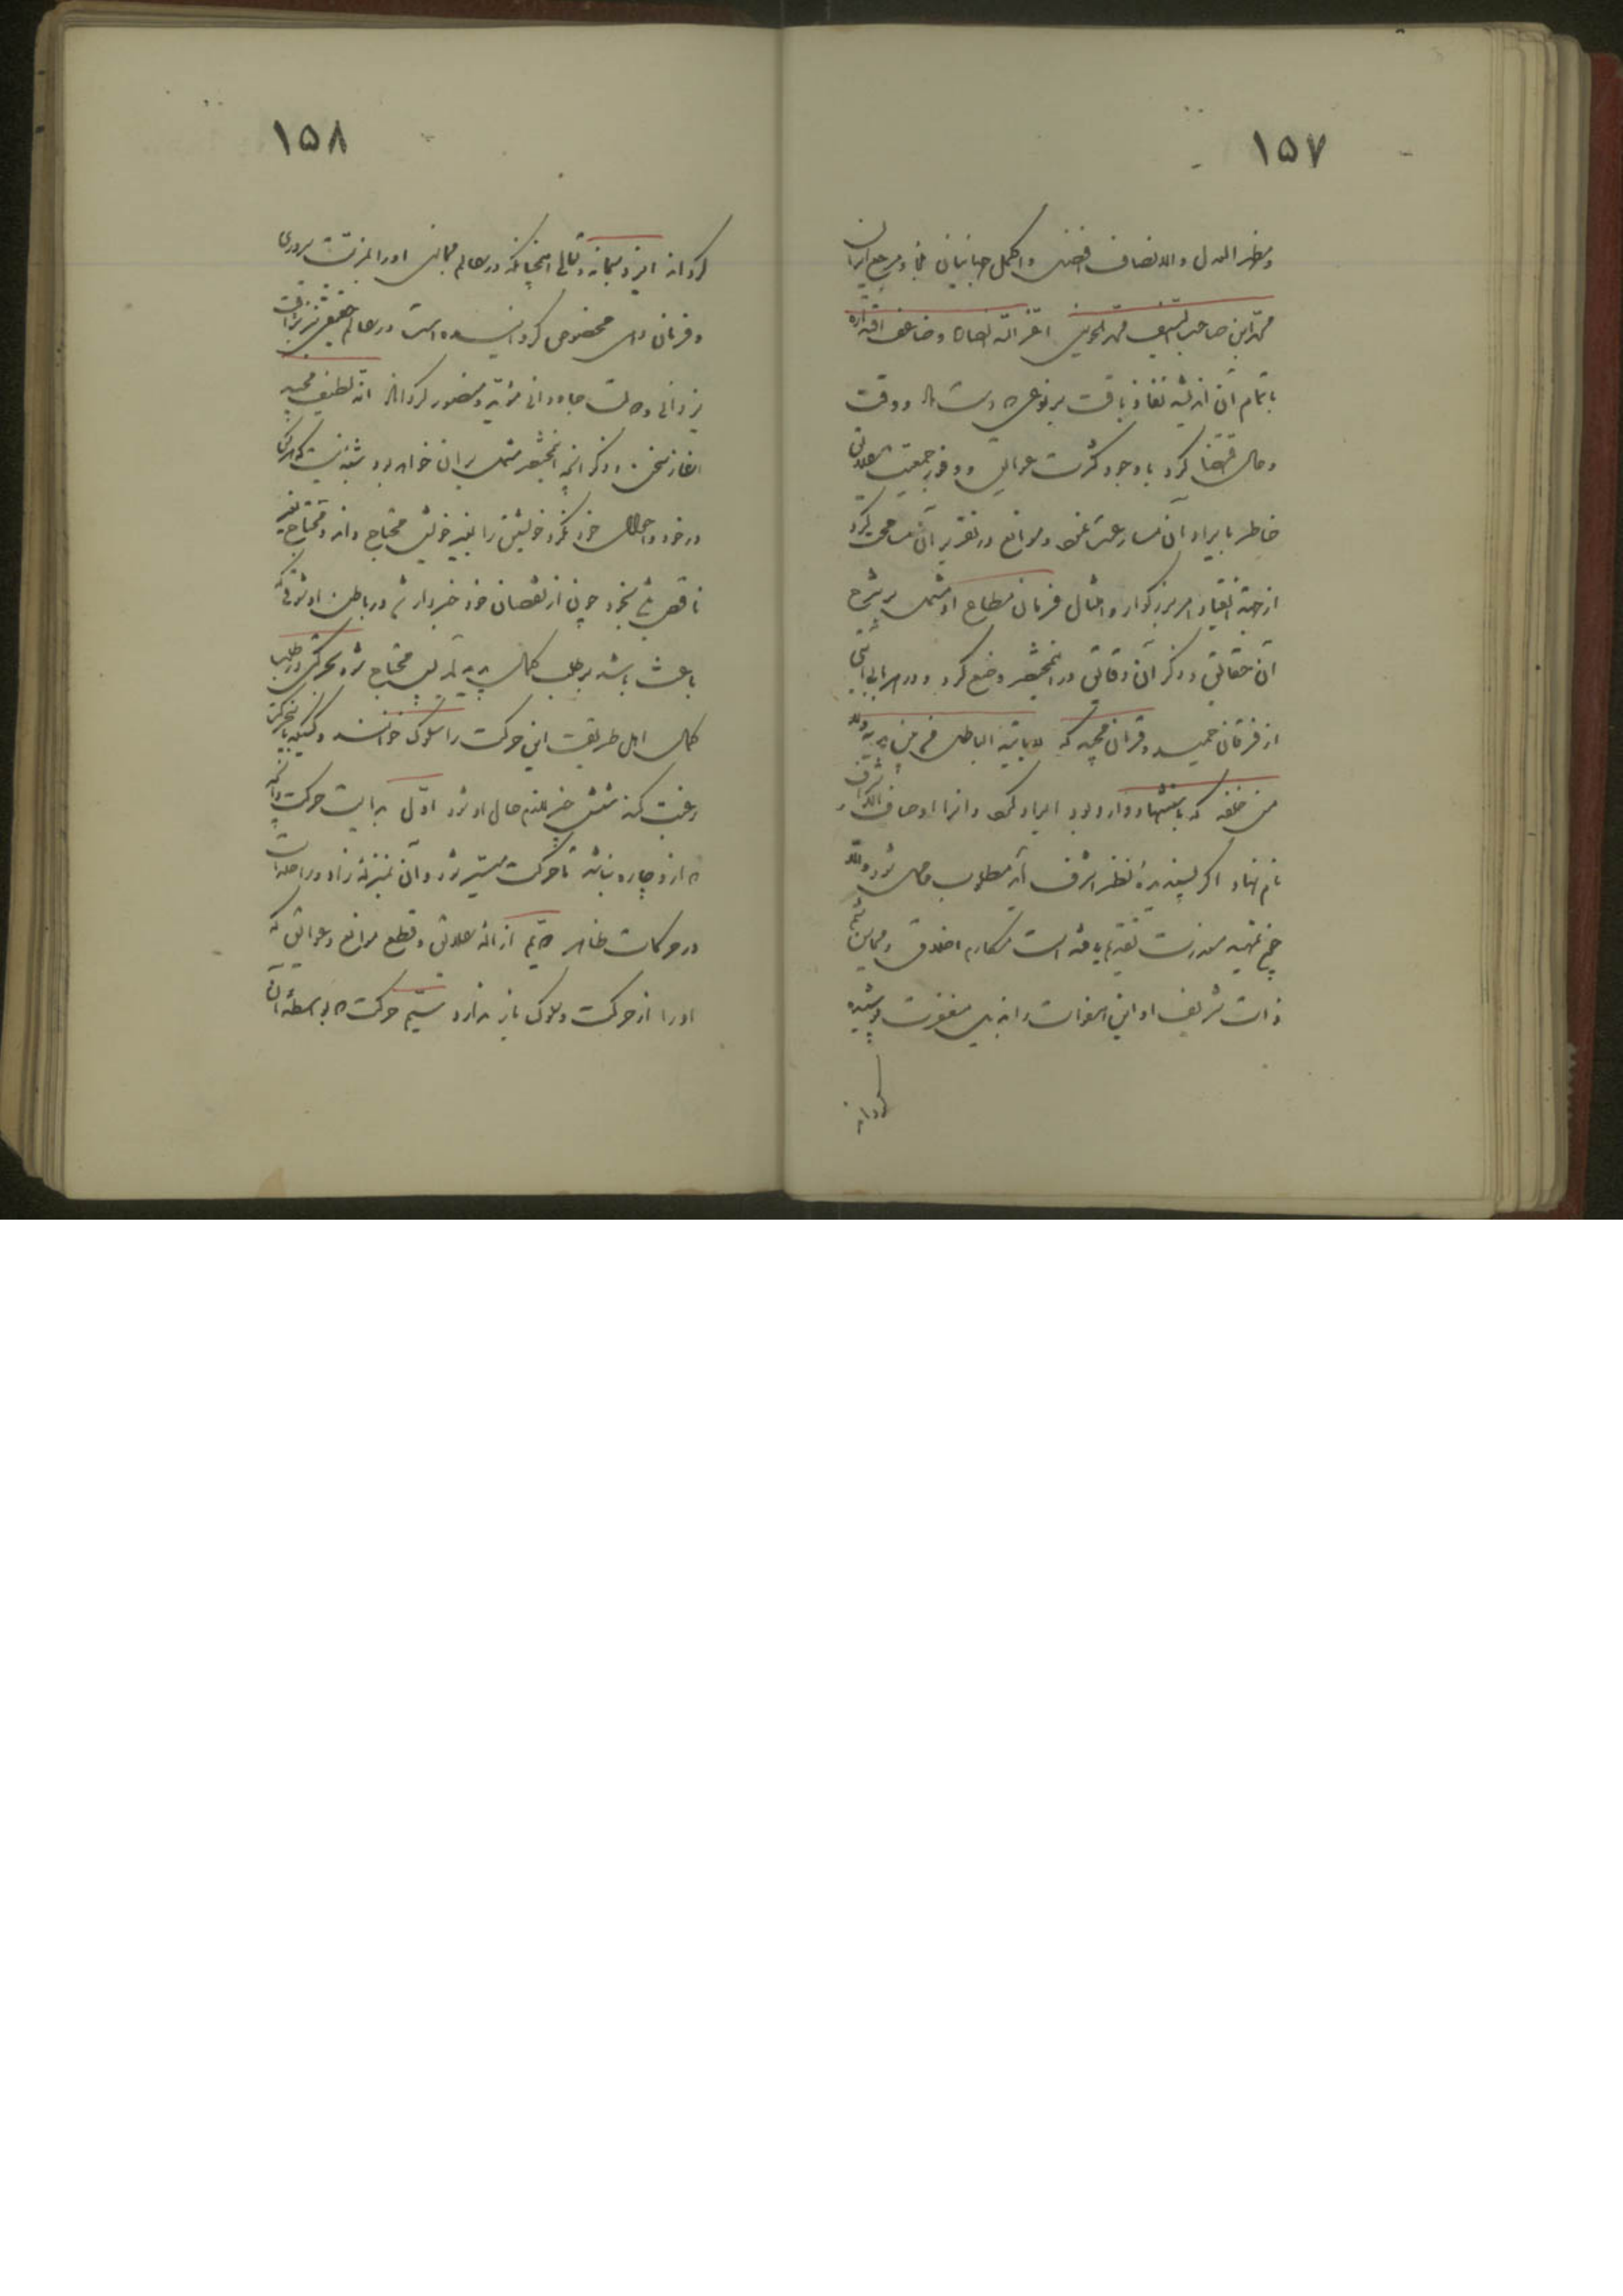 ۱۵۷
و مظهر العدل و الانصاف افضل و اکمل جهانیان ملجأ و مرجع ایران
محمد ابن صاحب السعید محمد الجوینی اعز الله انصاره و ضاعف اقتداره
باتمام آن اندیشه نفاذ یافت بر نوعی که دست داد و وقت
و حال اقتضا کرد با وجود کثرت عوایق و وفور جمعیت علایق
خاطر بایراد آن مسارعت نمود و موانع در تقریر آن مسامحت کرد
از جهة انقیاد امر بزرگوار و امتثال فرمان مطاع او مشتمل بر شرح
آن حقایق و ذکر آن دقایق در این مختصر وضع کرد و در هر بابی آیتی
از فرقان حمید و قرآن مجید که لا یاتیه الباطل من بین یدیه ولا
من خلفه که باستشهاد وارد بود ایراد کرد و آنرا اوصاف الاشراف
نام نهاد اگر پسندیدهٔ نظر اشرف آید مطلوب حاصل شود والا
چون تمهید معذرت تقدیم یافته است مکارم اخلاق و محاسن شیم
ذات شریف او این هفوات را بذیل مغفرت پوشیده
گرداند
۱۵۸
گرداند ایزد سبحانه و تعالی همچنانکه در عالم مجازی او را بمرتبت سروری
و فرمان دهی مخصوص گردانیده است در عالم حقیقی نیز برأفت
یزدانی و دولت جاودانی مؤید و منصور گرداناد انه لطیف مجیب
آغاز سخن در ذکر آنچه این مختصر مشتمل بر آن خواهد بود شبهه نیست که هر کس
در خود و احوال خود نگرد خویشتن را بغیر خویش محتاج داند و محتاج بغیر
ناقص باشد بخود چون از نقصان خود خبردار شود در باطن او شوقی که
باعث باشد بر طلب کمال پدید آید پس محتاج شود بحرکتی در طلب
کمال اهل طریقت این حرکت را سلوک خوانند و کسیکه باین حرکت
رغبت کند شش چیز لازم حال او شود اول بدایت حرکت و آنچه
که از او چاره نباشد تا حرکت میسر شود و آن بمنزلهٔ زاد و راحله است
در حرکات ظاهر دوم ازالهٔ علایق و قطع موانع و عوایق که
او را از حرکت و سلوک باز دارد سیم حرکت که بواسطهٔ آن